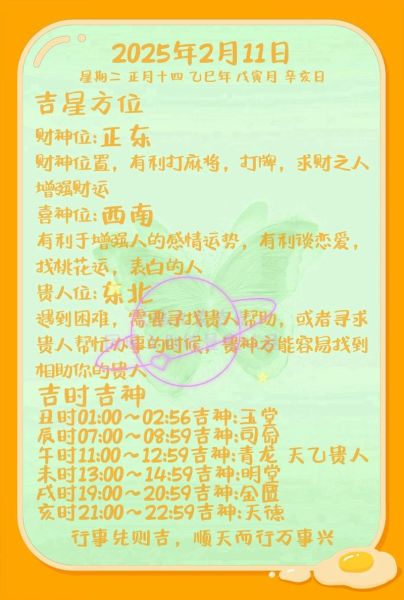 2025年2月11日
星期二 正月十四 乙巳年 戊寅月 辛亥日
吉星方位
财神位:正东
财神位置，有利打麻将，打牌，求财之人
增强财运
喜神位:西南
有利于增强人的感情运势，有利谈恋爱，
找桃花运，表白的人
贵人位:东北
遇到困难，需要寻找贵人帮助，或者寻求
贵人帮忙办事的时候，贵神方能容易找到
相助你的贵人
吉时吉神
丑时01:00～02:56吉神:玉堂
辰时07:00～08:59吉神:司命
午时11:00～12:59吉神:青龙 天乙贵人
未时13:00～14:59吉神:明堂
戌时19:00～20:59吉神:金匮
亥时21:00～22:59吉神:天德
行事先则吉，顺天而行万事兴